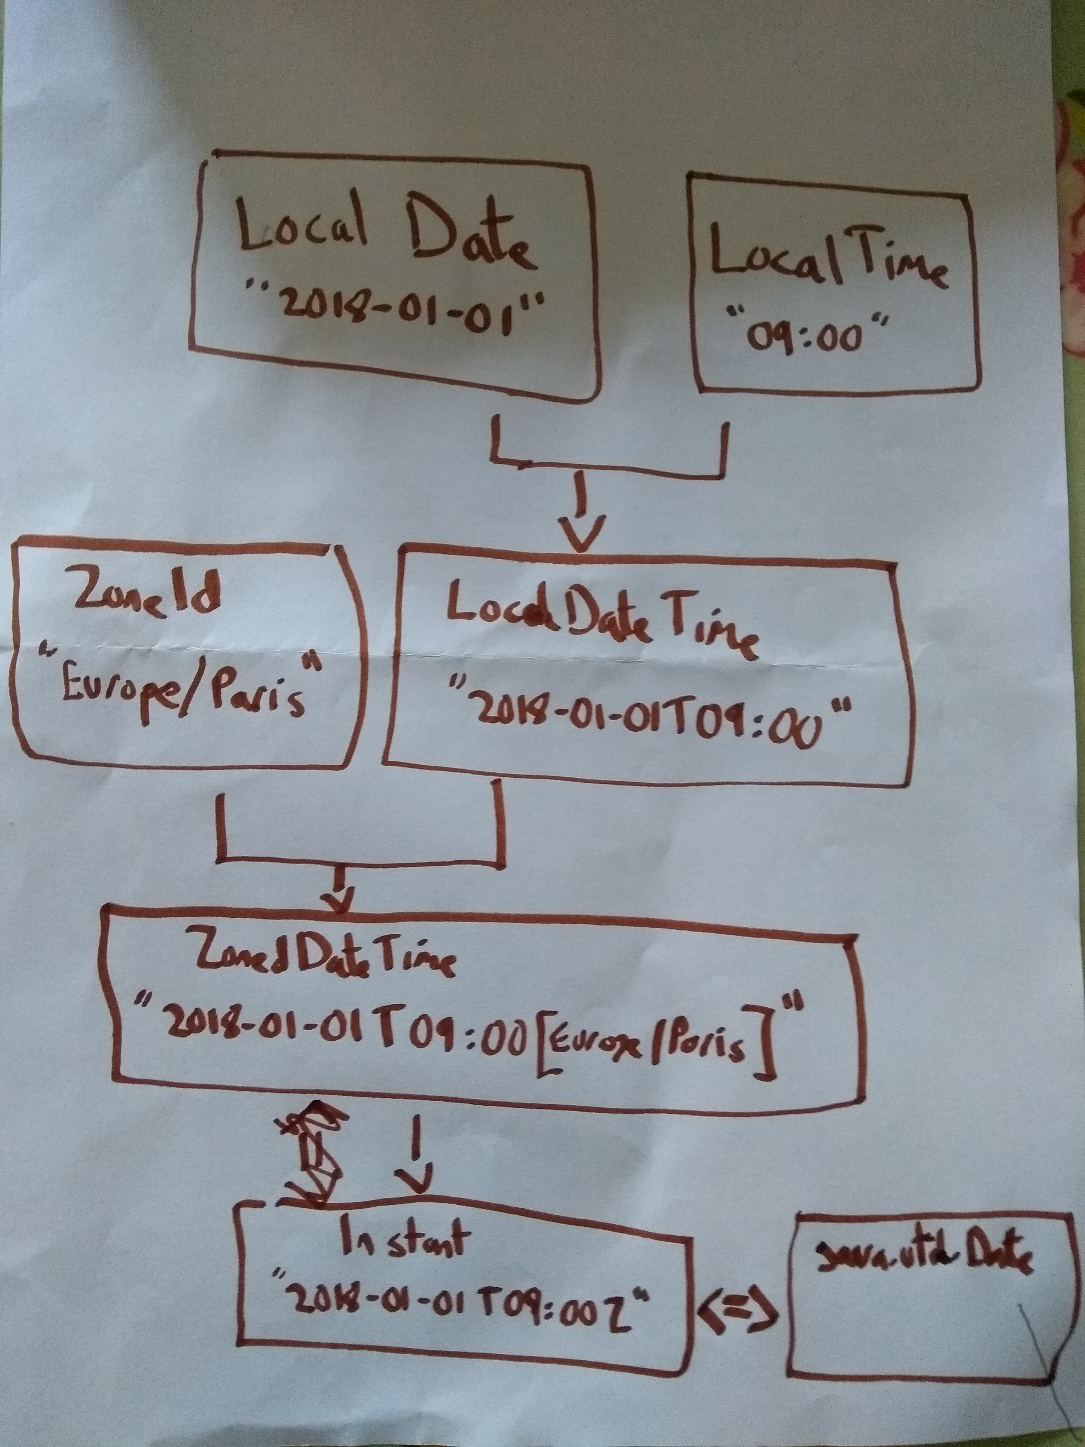 Local Date
"2018-01-01"
LocalTime
"09:00"
ZoneId
"Europe/Paris"
LocalDateTime
"2018-01-01T09:00"
ZonedDateTime
"2018-01-01T09:00[Europe/Paris]"
Instant
"2018-01-01T09:00Z"
<=>
java.util.Date